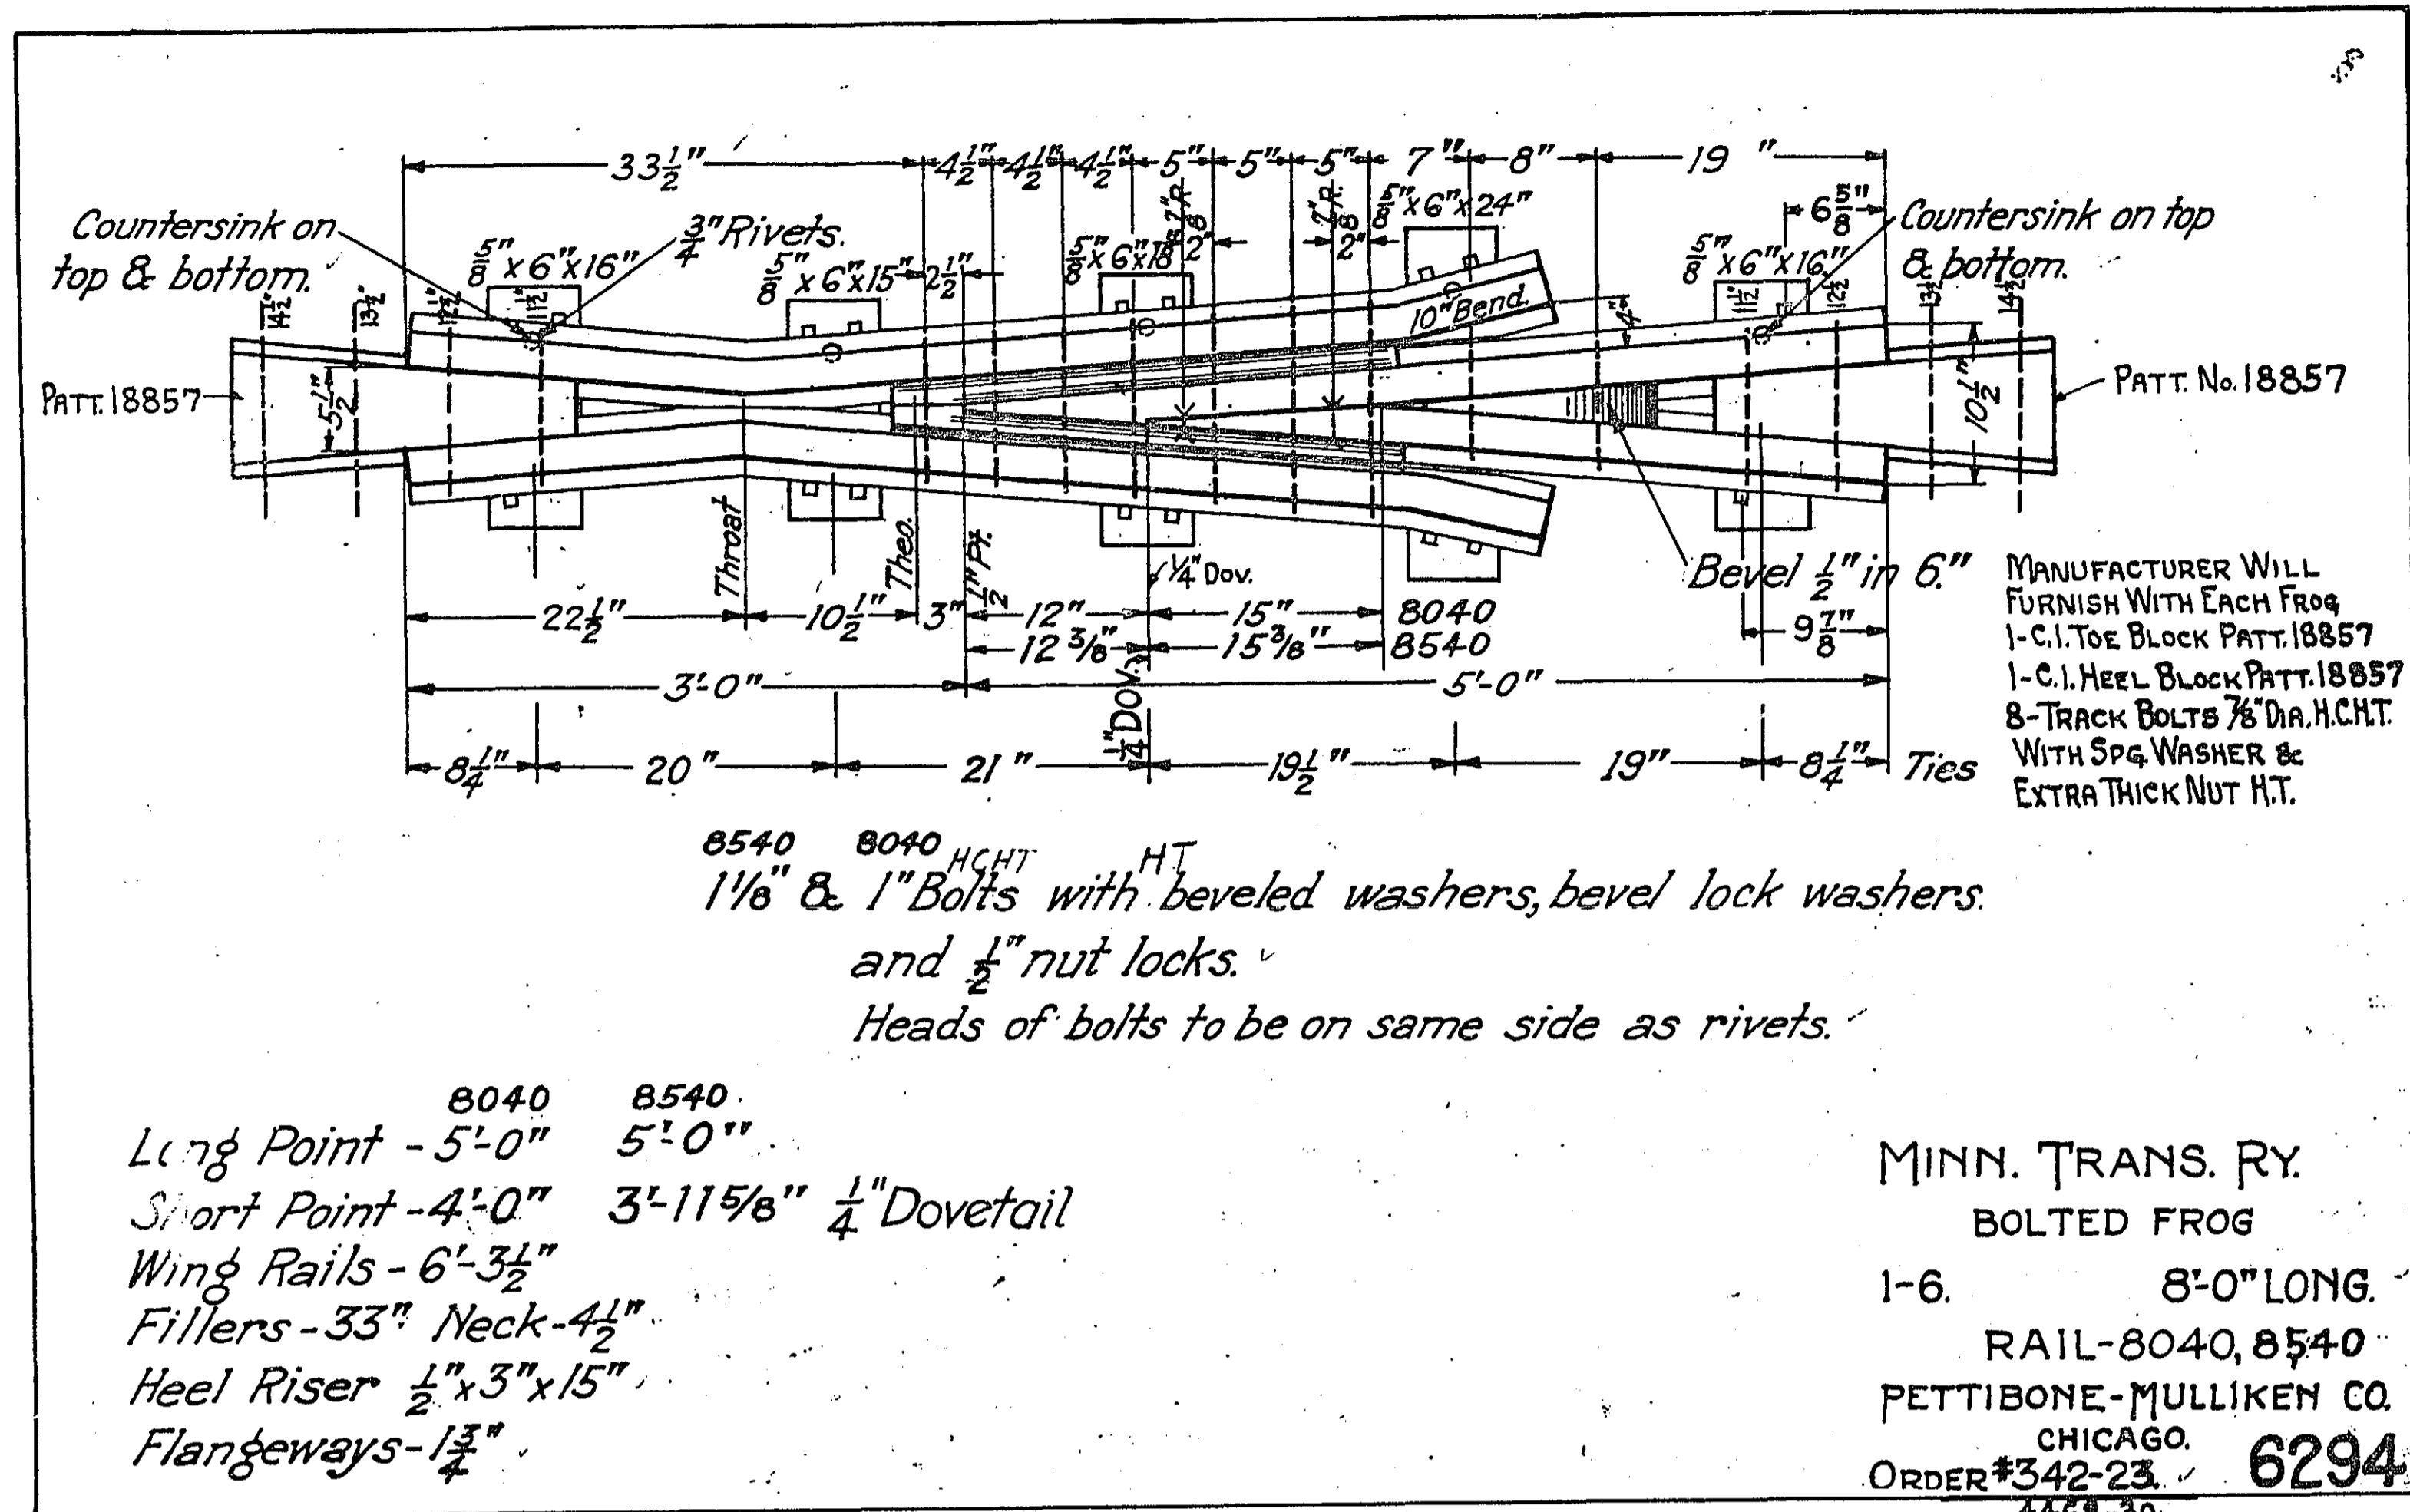 33 1/2" 4 1/2" 4 1/2" 4 1/2" 5" 5" 5" 7" 8" 19"
Countersink on
top & bottom.
3/4" Rivets.
5/8" x 6" x 16"
5/8" x 6" x 15"
2 1/2"
5/8" x 6" x 18"
7/8" R.
2"
7/8" R.
2"
5/8" x 6" x 24"
6 5/8"
5/8" x 6" x 16"
Countersink on top
& bottom.
14 1/2" 13 1/2" 12 1/2" 11 1/2"
10" Bend.
4"
11 1/2" 12 1/2" 13 1/2" 14 1/2"
PATT. 18857
5 1/2"
10 1/2"
PATT. No. 18857
Throat
Theo.
1/2" Pt.
1/4" Dov.
Bevel 1/2" in 6."
22 1/2" 10 1/2" 3" 12" 15" 8040
12 3/8" 15 3/8" 8540
9 7/8"
3'-0" 5'-0"
1/4" DOV.
8 1/4" 20" 21" 19 1/2" 19" 8 1/4" Ties
MANUFACTURER WILL
FURNISH WITH EACH FROG
1-C.I. TOE BLOCK PATT. 18857
1-C.I. HEEL BLOCK PATT. 18857
8-TRACK BOLTS 7/8" DIA. H.C.H.T.
WITH SPG. WASHER &
EXTRA THICK NUT H.T.
8540 8040 HCHT HT
1 1/8" & 1" Bolts with beveled washers, bevel lock washers.
and 1/2" nut locks.
Heads of bolts to be on same side as rivets.
8040 8540
Long Point - 5'-0" 5'-0"
Short Point - 4'-0" 3'-11 5/8" 1/4" Dovetail
Wing Rails - 6'-3 1/2"
Fillers - 33" Neck - 4 1/2"
Heel Riser 1/2" x 3" x 15"
Flangeways - 1 3/4"
MINN. TRANS. RY.
BOLTED FROG
1-6. 8'-0" LONG.
RAIL-8040, 8540
PETTIBONE-MULLIKEN CO.
CHICAGO.
ORDER #342-23. 6294